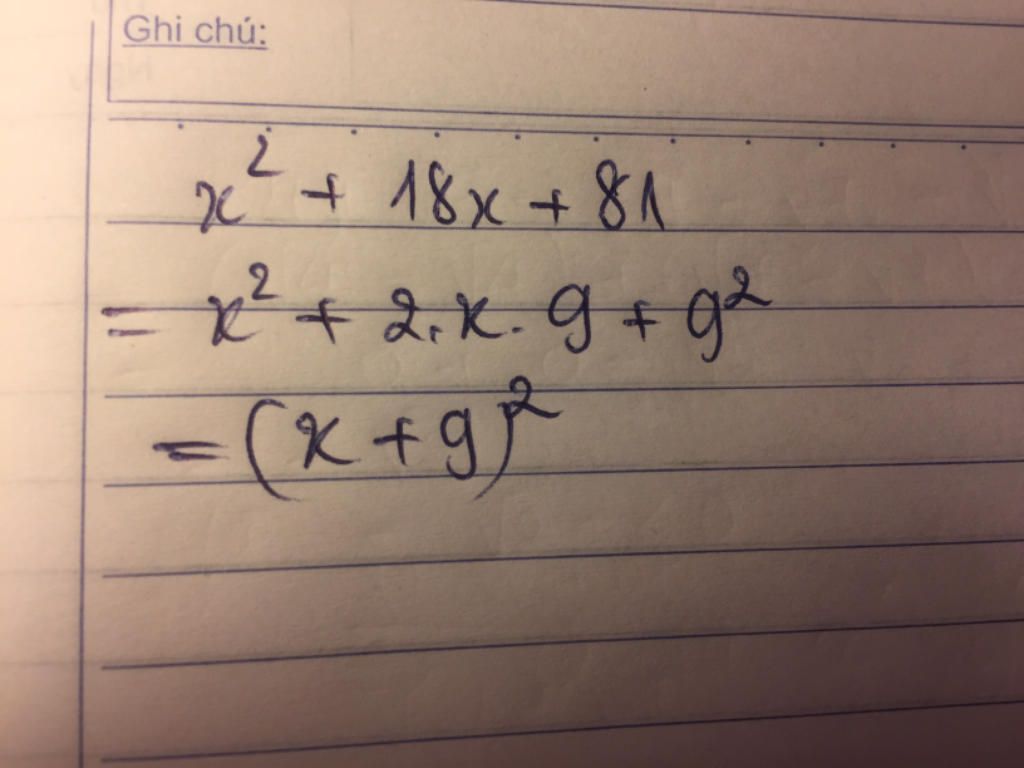 Ghi chú:
x² + 18x + 81
= x² + 2.x.9 + 9²
= (x + 9)²